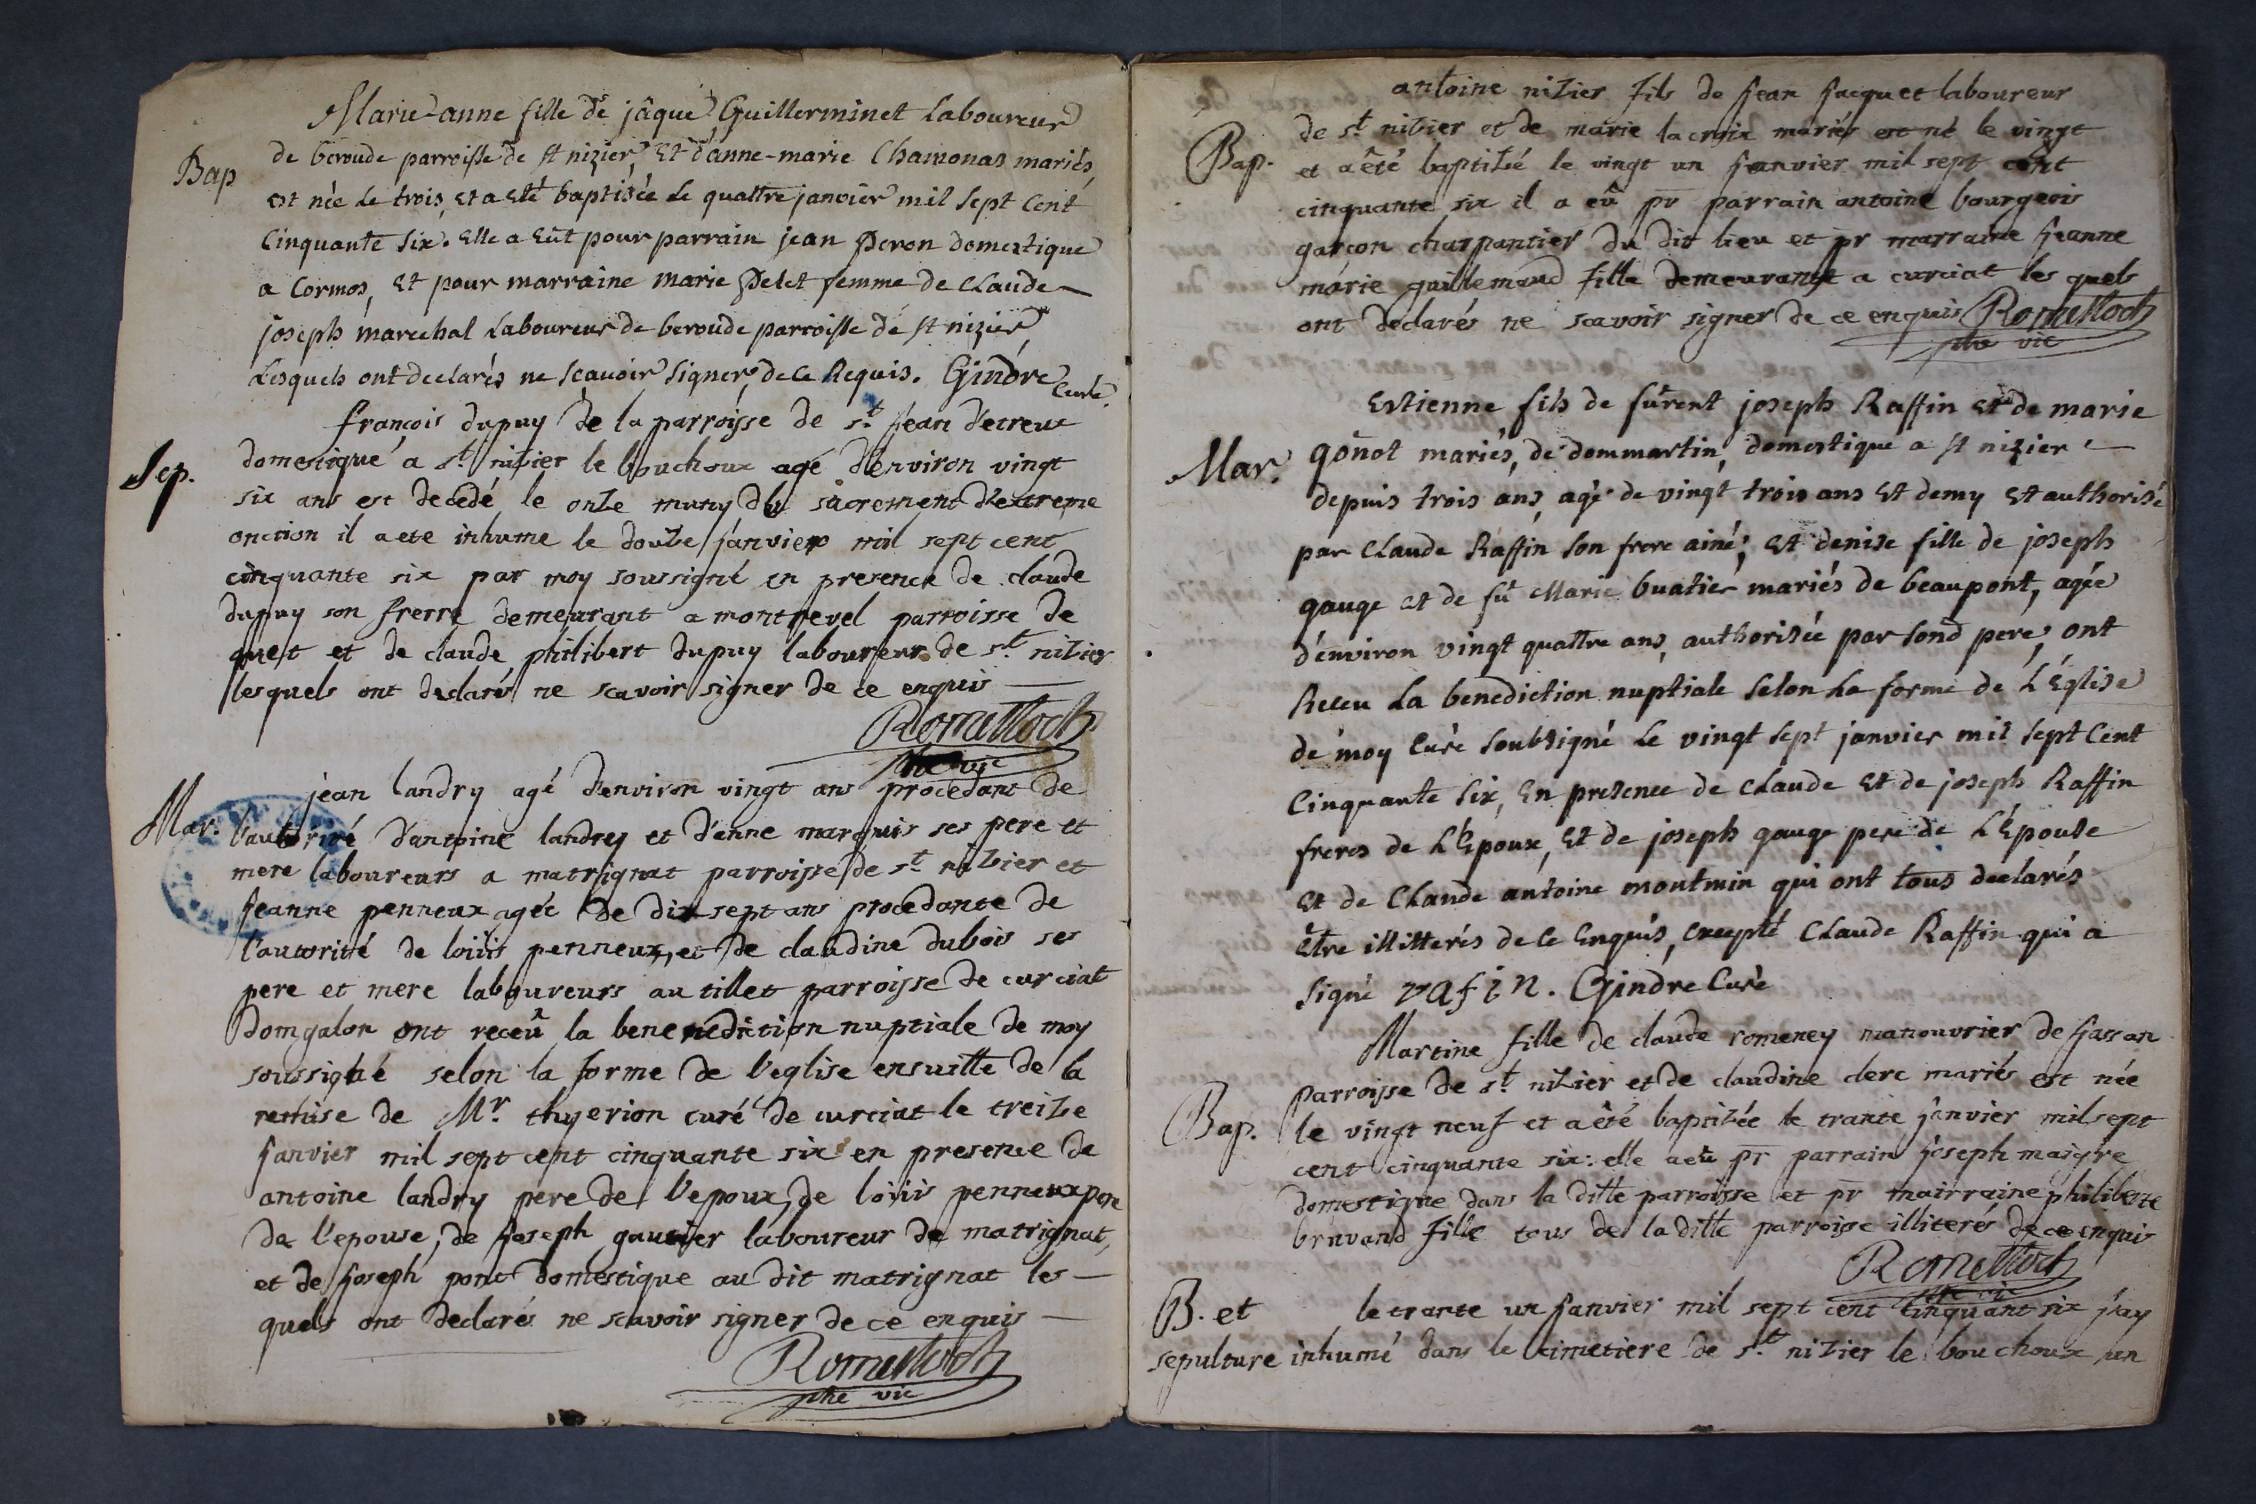 Marie-anne fille de jâque Guillerminet Laboureur
Bap
de beroude parroisse de st nizier Et d'anne-marie Chamonas mariés,
est née Le trois, Et a Eté baptisée Le quattre janvier mil Sept Cent
Cinquante Six. Elle a Eût pour parrain jean Peron domestique
a Cormos, Et pour marraine marie Pelet femme de Claude
joseph marechal Laboureur de beroude parroisse de st nizier
Lesquels ont declarés ne Scavoir Signer de ce Requis. Gindre Curé.
françois dupuy de la parroisse de st. jean d'etreux
Sep.
domestique a st. nizier le bouchoux agé d'environ vingt
six ans est decedé le onze muny du sacrement d'extreme
onction il a eté inhume le douze janvier mil sept cent
cinquante six par moy soussigné en presence de claude
dupuy son frerre demeurant a montrevel parroisse de
cuet et de claude philibert dupuy laboureur de st. nizier
lesquels ont declarés ne scavoir signer de ce enquis
Romettoch
ptre vic
jean landry agé d'environ vingt ans procedant de
Mar.
l'autorité d'antoine landry et d'anne marquis ses pere et
mere laboureurs a matrignat parroisse de st. nizier et
jeanne penneux agée de dix sept ans procedante de
l'autorité de loüis penneux, et de claudine dubois ses
pere et mere laboureurs au tillet parroisse de curciat
domgalon ont receû la benenediction nuptiale de moy
soussigné selon la forme de l'eglise ensuitte de la
remise de Mr. thyerion curé de curciat le treize
janvier mil sept cent cinquante six en presence de
antoine landry pere de l'epoux, de loüis penneux pere
de l'epouse, de joseph gautier laboureur de matrignat,
et de joseph pont domestique au dit matrignat les
quels ont declarés ne scavoir signer de ce enquis
Romettoch
ptre vic
antoine nizier fils de jean jacquet laboureur
de st. nizier et de marie la croix mariés est né le vingt
Bap.
et a êté baptizé le vingt un janvier mil sept cent
cinquante six il a eû pr parrain antoine bourgeois
garçon charpantier du dit lieu et pr marraine jeanne
marie guillemaud fille demeurante a curciat les quels
ont declarés ne scavoir signer de ce enquis Romettoch
ptre vic
Estienne fils de fûrent joseph Raffin Et de marie
Mar.
gonot mariés, de dommartin, domestique a st nizier
depuis trois ans, agé de vingt trois ans Et demy Et authorisé
par Claude Raffin Son frere ainé; Et denise fille de joseph
gauge et de fût Marie buatier mariés de beaupont, agée
d'environ vingt quattre ans, authorisée par Sond pere, ont
Receu La benediction nuptiale Selon La forme de L'Église
de moy Curé Soubsigné Le vingt Sept janvier mil Sept Cent
Cinquante Six, En presence de Claude Et de joseph Raffin
freres de L'Epoux, Et de joseph gauge pere de L'Epouse
Et de Claude antoine montmin qui ont tous declarés
Être illitterés de ce Enquis, Excepté Claude Raffin qui a
Signé rafin. Gindre Curé
Martine fille de claude romeney manouvrier de jassan
parroisse de st. nizier et de claudine clerc mariés est née
Bap.
le vingt neuf et a êté baptizée le trante janvier mil sept
cent cinquante six: elle a eû pr parrain joseph maigre
domestique dans la ditte parroisse et pr mairraine philiberte
bruvand fille tous de la ditte parroisse illiterés de ce enquis
Romettoch
B. et
le trante un janvier mil sept cent cinquant six j'ay
sepulture
inhumé dans le cimetiere de st. nizier le bouchoux un